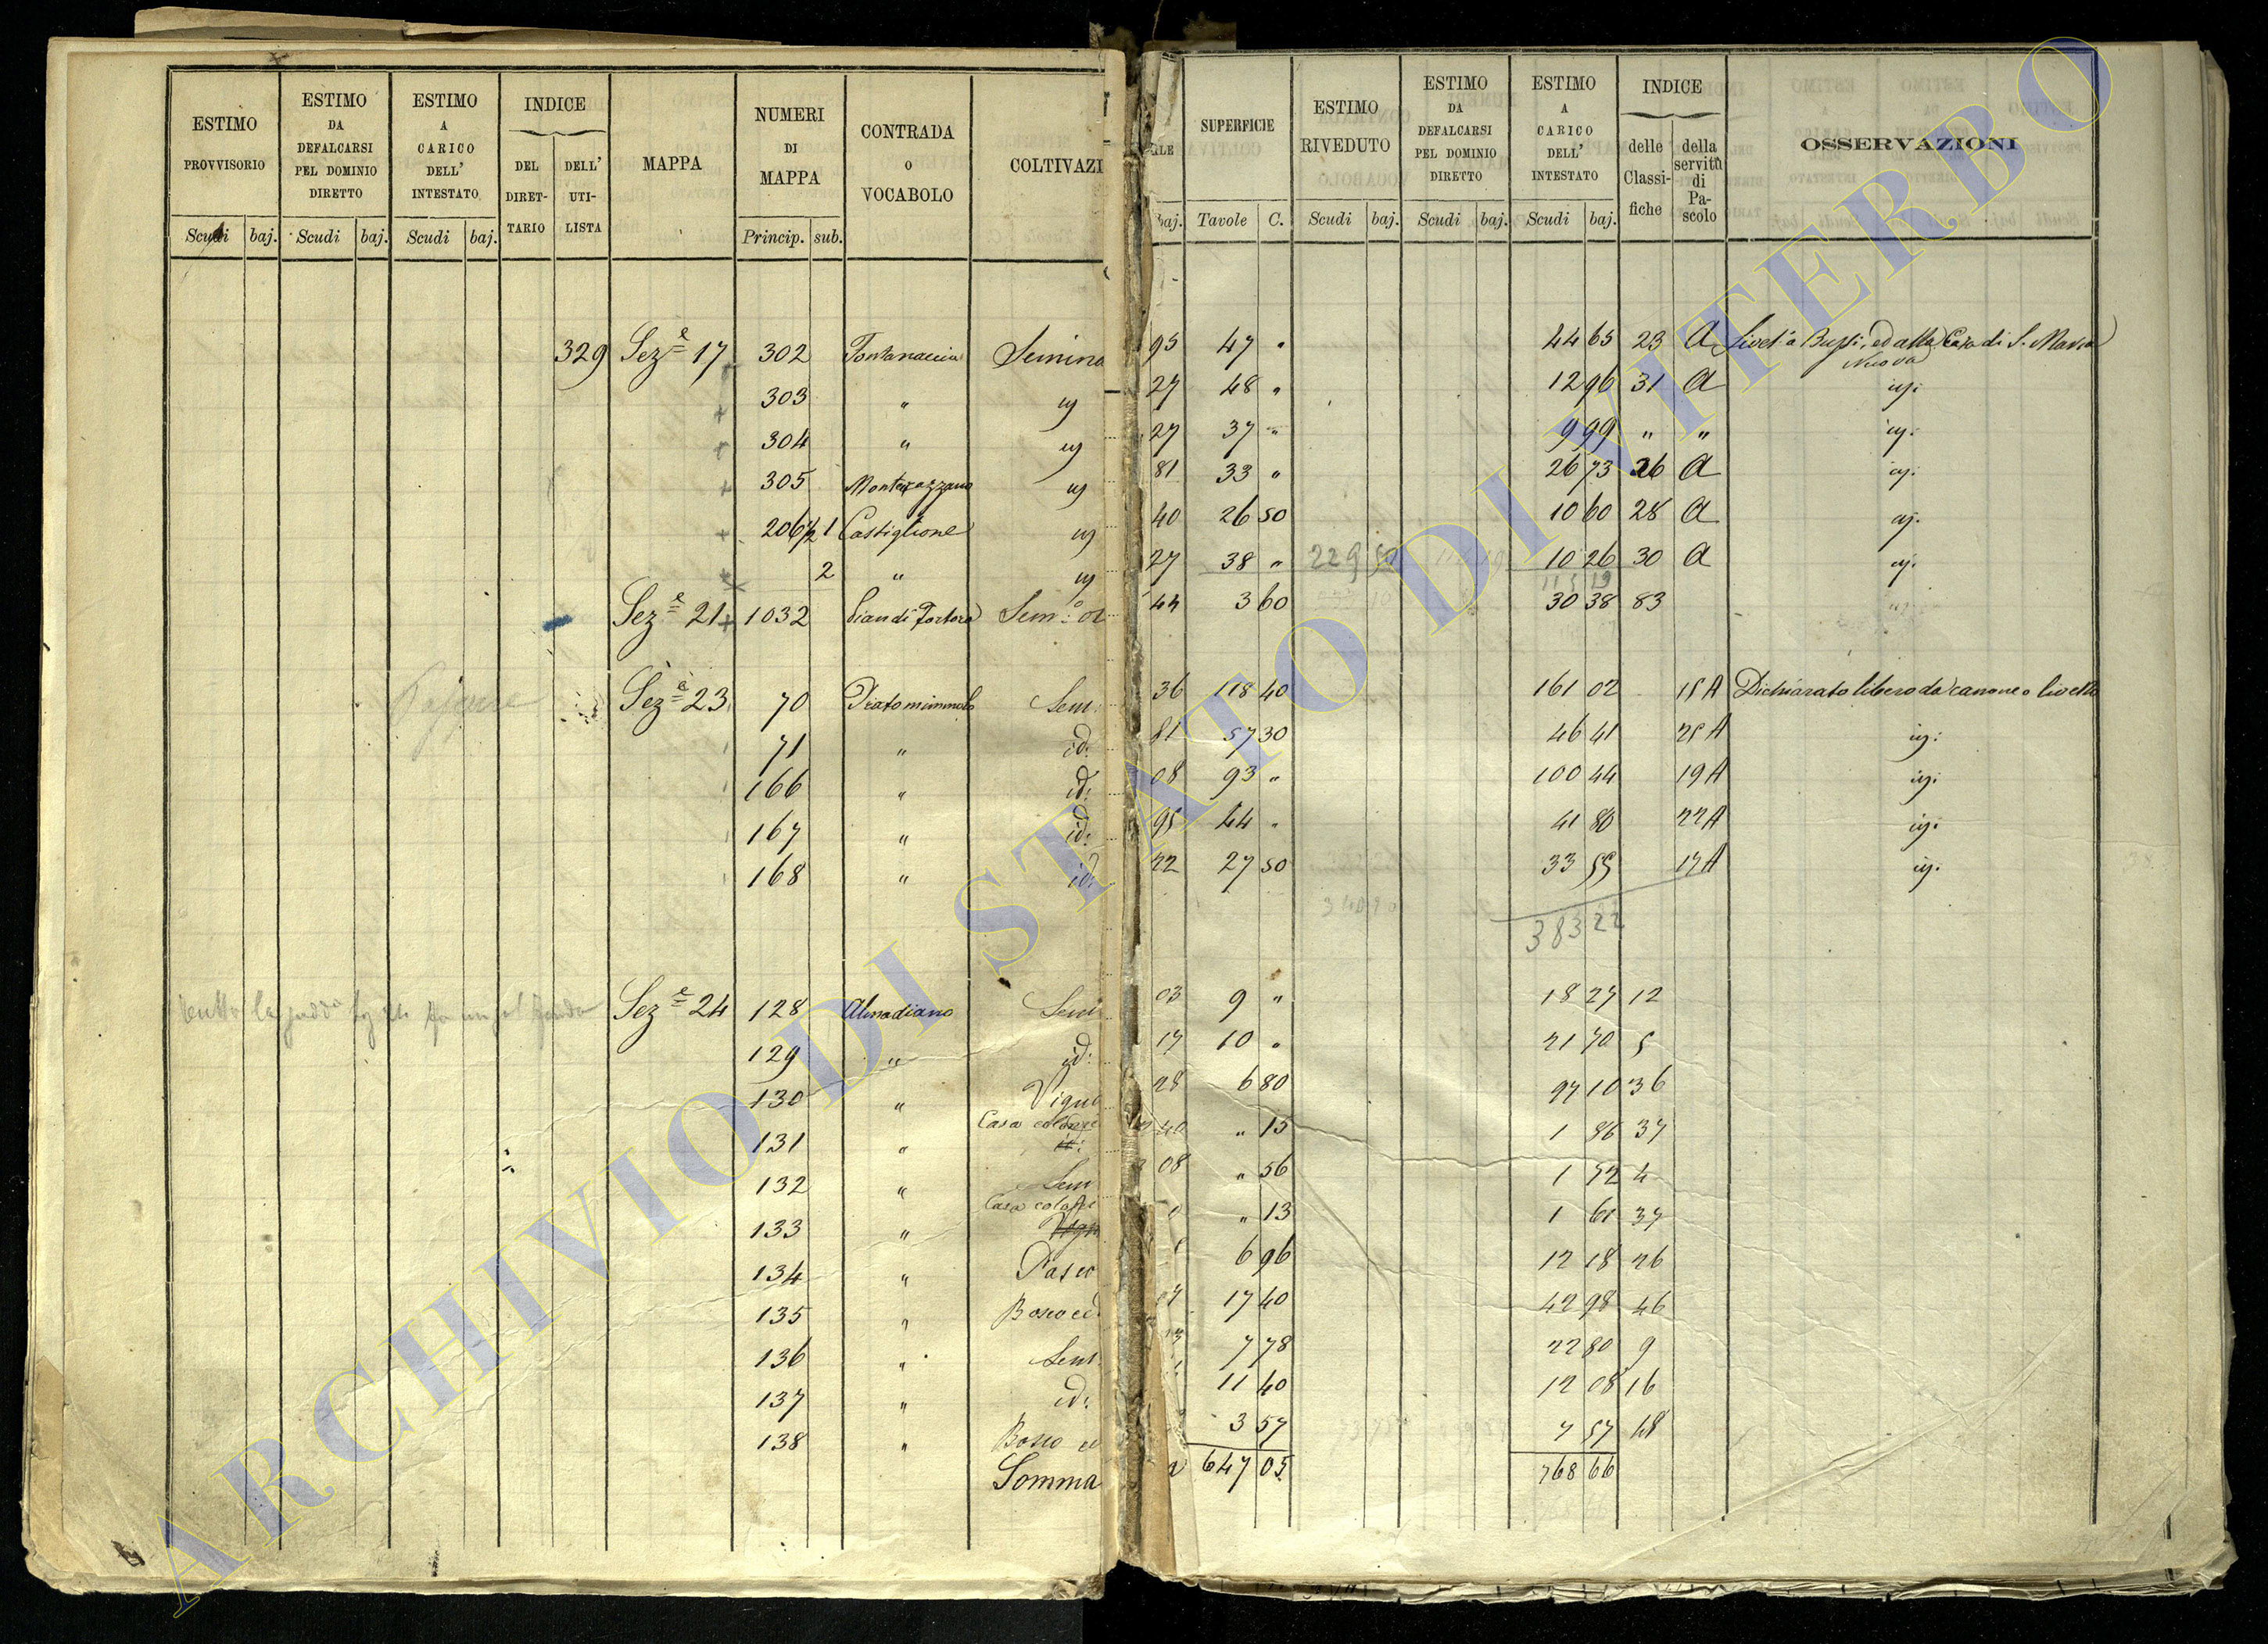 ESTIMO PROVVISORIO Scudi baj.
ESTIMO DA DEFALCARSI PEL DOMINIO DIRETTO Scudi baj.
ESTIMO A CARICO DELL' INTESTATO Scudi baj.
INDICE DEL DIRETTARIO DELL' UTILISTA
MAPPA
NUMERI DI MAPPA Princip. sub.
CONTRADA O VOCABOLO
COLTIVAZI
SUPERFICIE Tavole C.
ESTIMO RIVEDUTO Scudi baj.
ESTIMO DA DEFALCARSI PEL DOMINIO DIRETTO Scudi baj.
ESTIMO A CARICO DELL' INTESTATO Scudi baj.
INDICE delle Classifiche della servitù di Pascolo
OSSERVAZIONI
329 Sez.e 17 302 Fontanaccia Semina 95 47 " 44 65 23 A Livel. a Bussi, ed alla Casa di S. Maria Nuova
303 " id 27 48 " 12 96 31 A id:
304 " id 27 37 " 9 99 " " id:
305 Monterazzano id 81 33 " 26 73 26 A id:
206/2 1 Castiglione id 40 26 50 10 60 28 A id:
2 " id 27 38 " 229 50 10 26 30 A id:
115 19
Sez.e 21 1032 Pian di Tortora Sem.o 44 3 60 30 38 83
Sez.e 23 70 Sem: 36 118 40 161 02 15 A Dichiarato libero da canone o livello
71 " id: 81 57 30 46 41 25 A id:
166 " id: 08 93 " 100 44 19 A id:
167 " id: 95 44 " 41 80 22 A id:
168 " id: 22 27 50 33 55 17 A id:
383 22
Sez.e 24 128 Almadiano Sem 03 9 " 18 27 12
129 " id: 17 10 " 21 70 5
130 " Vigna 28 6 80 97 10 36
131 " Casa colonic id: 40 " 15 1 86 37
132 " Sem 08 " 56 1 52 4
133 " Casa colonic Vign " 13 1 61 37
134 " Pasco 6 96 12 18 26
135 " Bosco ced 07 17 40 42 98 46
136 " Sem 7 78 22 80 9
137 " id: 11 40 12 08 16
138 " Bosco ce 3 57 7 57 48
Somma 647 05 768 66
ARCHIVIO DI STATO DI VITERBO